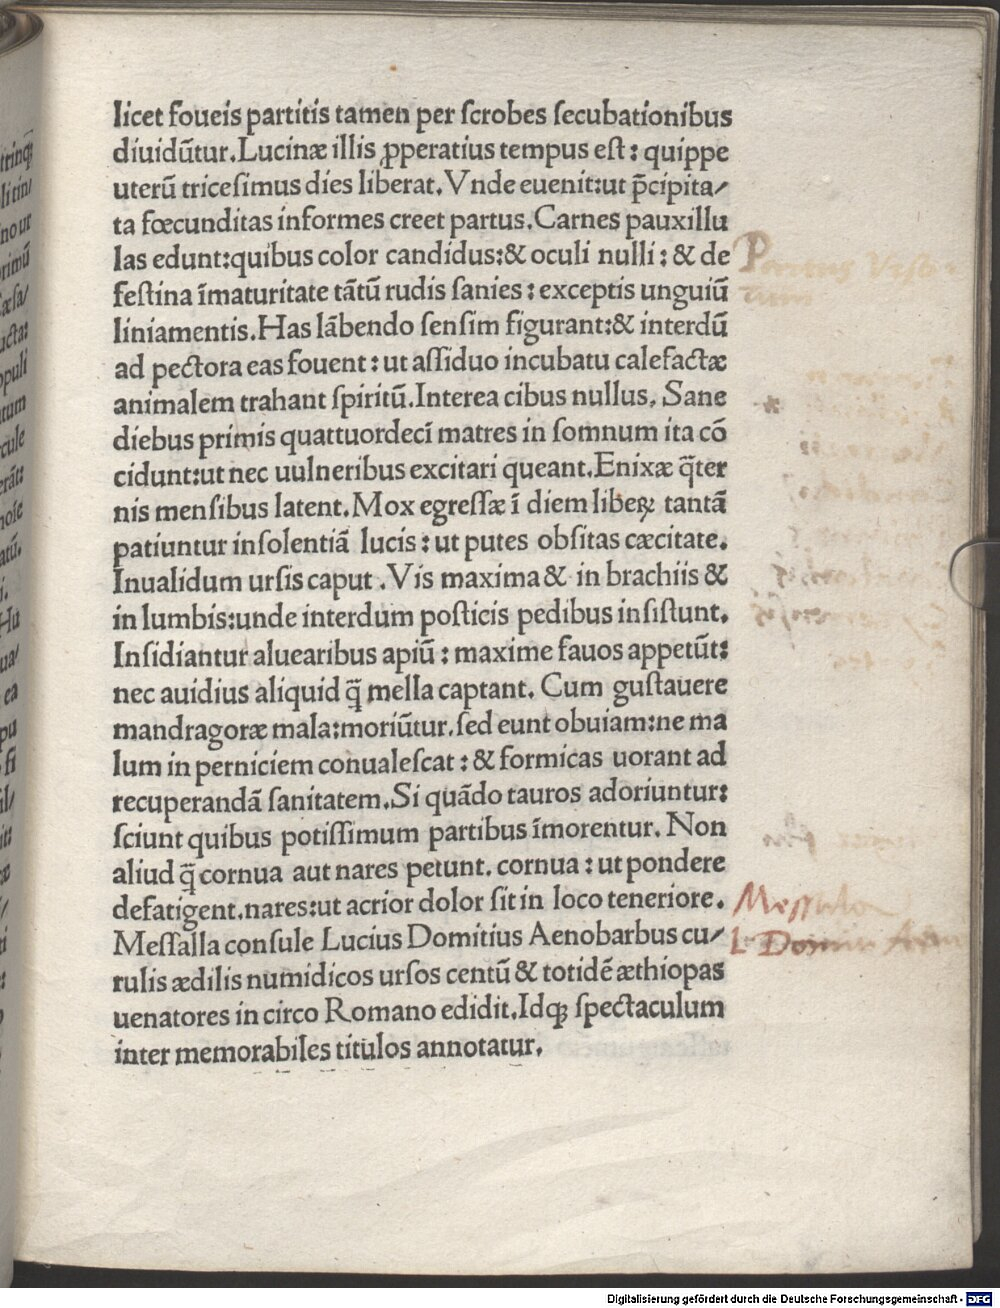 licet foueis partitis tamen per ſcrobes ſecubationibus
diuidūtur. Lucinæ illis ꝓperatius tempus eſt: quippe
uterū triceſimus dies liberat. Vnde euenit: ut p̄cipita⸗
ta fœcunditas informes creet partus. Carnes pauxillu
las edunt: quibus color candidus: & oculi nulli: & de
feſtina īmaturitate tātū rudis ſanies: exceptis unguiū
liniamentis. Has lābendo ſenſim figurant: & interdū
ad pectora eas fouent: ut aſſiduo incubatu calefactæ
animalem trahant ſpiritū. Interea cibus nullus. Sane
diebus primis quattuordecī matres in ſomnum ita cō
cidunt: ut nec uulneribus excitari queant. Enixæ q̄ter
nis menſibus latent. Mox egreſſæ ī diem liberꝝ tantā
patiuntur inſolentiā lucis: ut putes obſitas cæcitate.
Inualidum urſis caput. Vis maxima & in brachiis &
in lumbis: unde interdum poſticis pedibus inſiſtunt.
Inſidiantur aluearibus apiū: maxime fauos appetūt:
nec auidius aliquid q̄ mella captant. Cum guſtauere
mandragoræ mala: moriūtur. ſed eunt obuiam: ne ma
lum in perniciem conualeſcat: & formicas uorant ad
recuperandā ſanitatem. Si quādo tauros adoriuntur:
ſciunt quibus potiſſimum partibus īmorentur. Non
aliud q̄ cornua aut nares petunt. cornua: ut pondere
defatigent. nares: ut acrior dolor ſit in loco teneriore.
Meſſalla conſule Lucius Domitius Aenobarbus cu⸗
rulis ædilis numidicos urſos centū & totidē æthiopas
uenatores in circo Romano edidit. Idqꝫ ſpectaculum
inter memorabiles titulos annotatur.
Partus Vrſo
rum
Meſſala
L Domiti
Digitalisierung gefördert durch die Deutsche Forschungsgemeinschaft - DFG